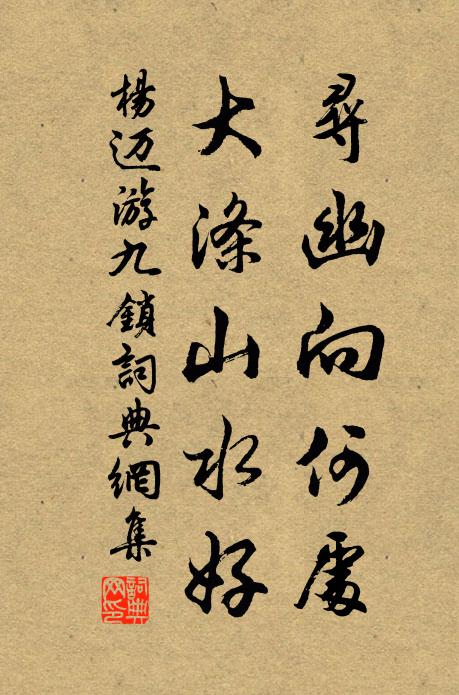 尋幽向何處
大滌山水好
楊迈游九鎖詞典網集
詞典網印